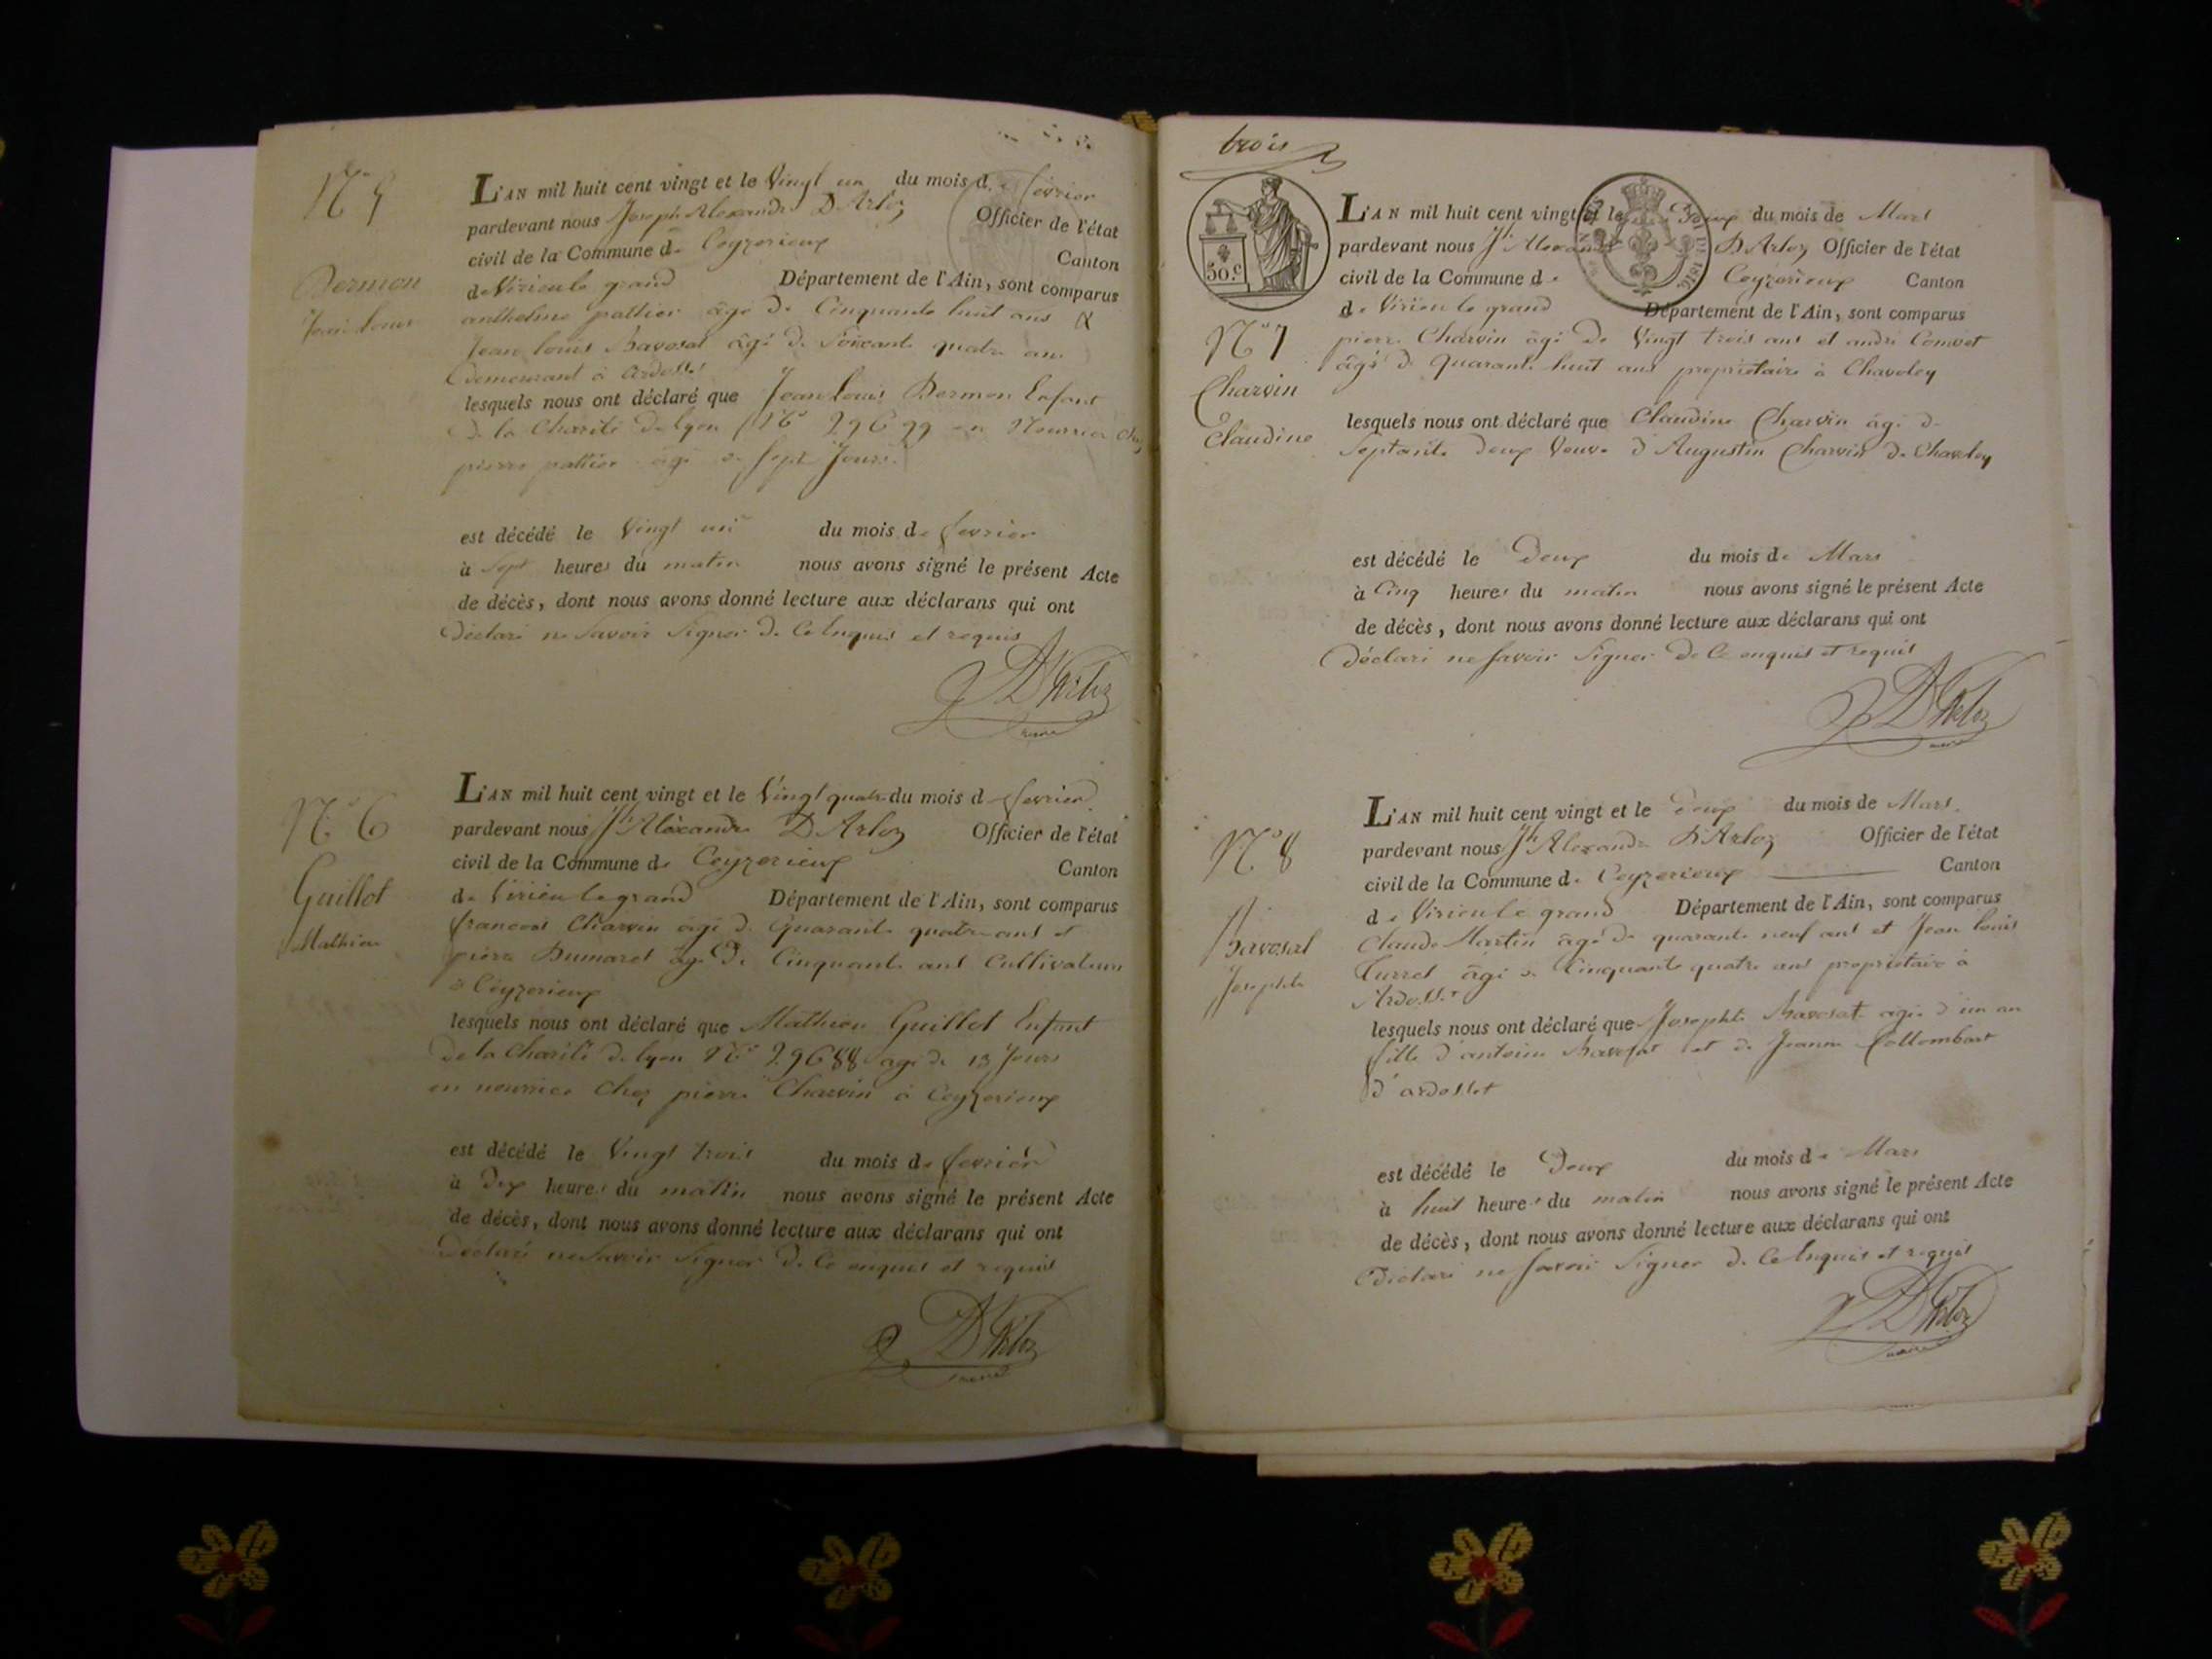 N° 5
Dermon
Jean Louis
L'AN mil huit cent vingt et le Vingt un du mois de fevrier
pardevant nous Joseph Alexandre D'Arloz Officier de l'état
civil de la Commune de Ceyzerieux Canton
de Virieu le grand Département de l'Ain, sont comparus
anthelme pattier âgé de Cinquante huit ans &
Jean louis Bavosat âgé de Soixante quatre ans
demeurant à ardosset
lesquels nous ont déclaré que Jean Louis Dermon Enfant
de la Charité de lyon N° 29699 en Nourrice chez
pierre pattier âgé de Sept Jours.
est décédé le Vingt un du mois de fevrier
à Sept heures du matin nous avons signé le présent Acte
de décès, dont nous avons donné lecture aux déclarans qui ont
Déclaré ne Savoir Signer de Ce Enquis et requis
D'Arloz
maire
N° 6
Guillot
Mathieu
L'AN mil huit cent vingt et le Vingt quatre du mois de fevrier
pardevant nous Jh Alexandre D'Arloz Officier de l'état
civil de la Commune de Ceyzerieux Canton
de Virieu le grand Département de l'Ain, sont comparus
francois Charvin âgé de Quarante quatre ans et
pierre Dumaret âgé de Cinquante ans Cultivateurs
à Ceyzerieux
lesquels nous ont déclaré que Mathieu Guillot Enfant
de la Charité de lyon N° 29688 agé de 13 Jours
en nourrice chez pierre Charvin à Ceyzerieux
est décédé le Vingt trois du mois de fevrier
à Dix heures du matin nous avons signé le présent Acte
de décès, dont nous avons donné lecture aux déclarans qui ont
Déclaré ne Savoir Signer de Ce enquis et requis
D'Arloz
maire
trois
50.c
N° 7
Charvin
Claudine
L'AN mil huit cent vingt et le Deux du mois de Mars
pardevant nous Jh Alexandre D'Arloz Officier de l'état
civil de la Commune de Ceyzerieux Canton
de Virieu le grand Département de l'Ain, sont comparus
pierre Charvin âgé de Vingt trois ans et andré Comvet
âgé de Quarante huit ans propriétaire à Chavoley
lesquels nous ont déclaré que Claudine Charvin âgé de
Septante Deux Veuve d'Augustin Charvin de Chavoley
est décédé le Deux du mois de Mars
à Cinq heures du matin nous avons signé le présent Acte
de décès, dont nous avons donné lecture aux déclarans qui ont
Déclaré ne Savoir Signer de Ce enquis et requis
D'Arloz
maire
N° 8
Bavosat
Josephte
L'AN mil huit cent vingt et le deux du mois de Mars
pardevant nous Jh Alexandre D'Arloz Officier de l'état
civil de la Commune de Ceyzerieux Canton
de Virieu le grand Département de l'Ain, sont comparus
Claude Martin âgé de quarante neuf ans et Jean louis
Curret âgé de Cinquante quatre ans propriétaire à
Ardosset
lesquels nous ont déclaré que Josephte Bavosat âgée d'un an
fille d'antoine Bavosat et de Jeanne Collombart
d'ardosset
est décédé le Deux du mois de Mars
à huit heures du matin nous avons signé le présent Acte
de décès, dont nous avons donné lecture aux déclarans qui ont
Déclaré ne Savoir Signer de Ce Enquis et requis
D'Arloz
maire